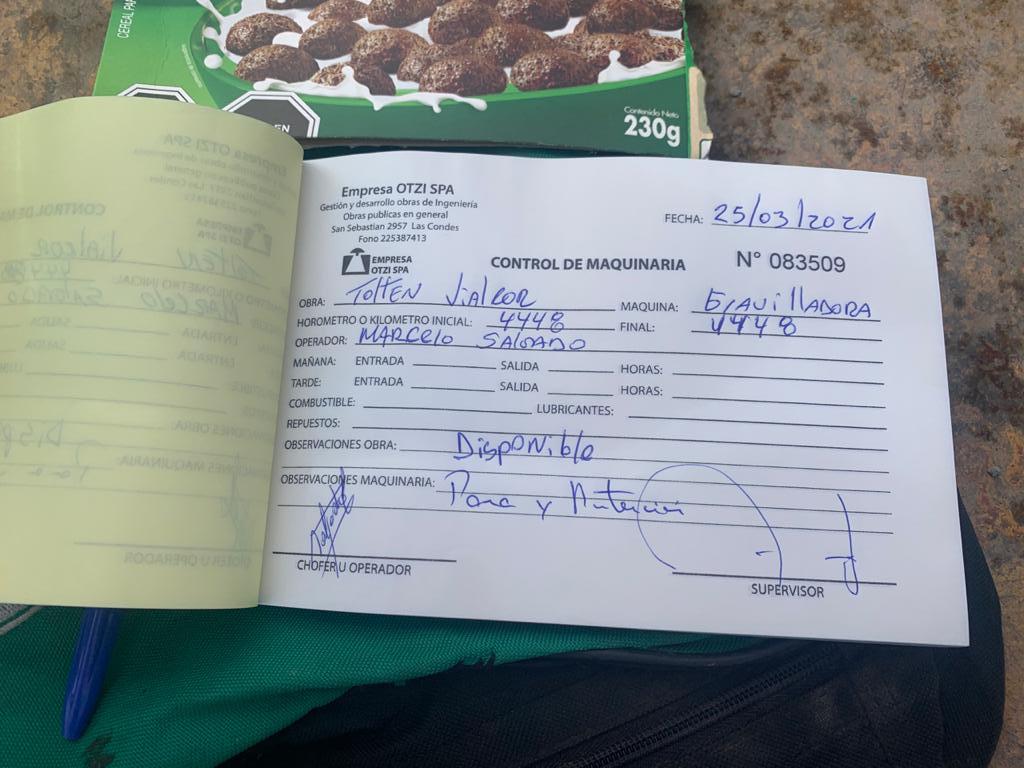 CEREAL PA
EN
Contenido Neto
230g
Empresa OTZI SPA
Gestión y desarrollo obras de Ingeniería
Obras publicas en general
San Sebastian 2957 Las Condes
Fono 225387413
FECHA: 25/03/2021
EMPRESA
OTZI SPA
CONTROL DE MAQUINARIA N° 083509
OBRA: Tolten Vialcor MAQUINA: GravillADORA
HOROMETRO O KILOMETRO INICIAL: 4448 FINAL: 4448
OPERADOR: MARCelo SALGADO
MAÑANA: ENTRADA SALIDA HORAS:
TARDE: ENTRADA SALIDA HORAS:
COMBUSTIBLE: LUBRICANTES:
REPUESTOS:
OBSERVACIONES OBRA: Disponible
OBSERVACIONES MAQUINARIA: Pana y
CHOFER U OPERADOR
SUPERVISOR